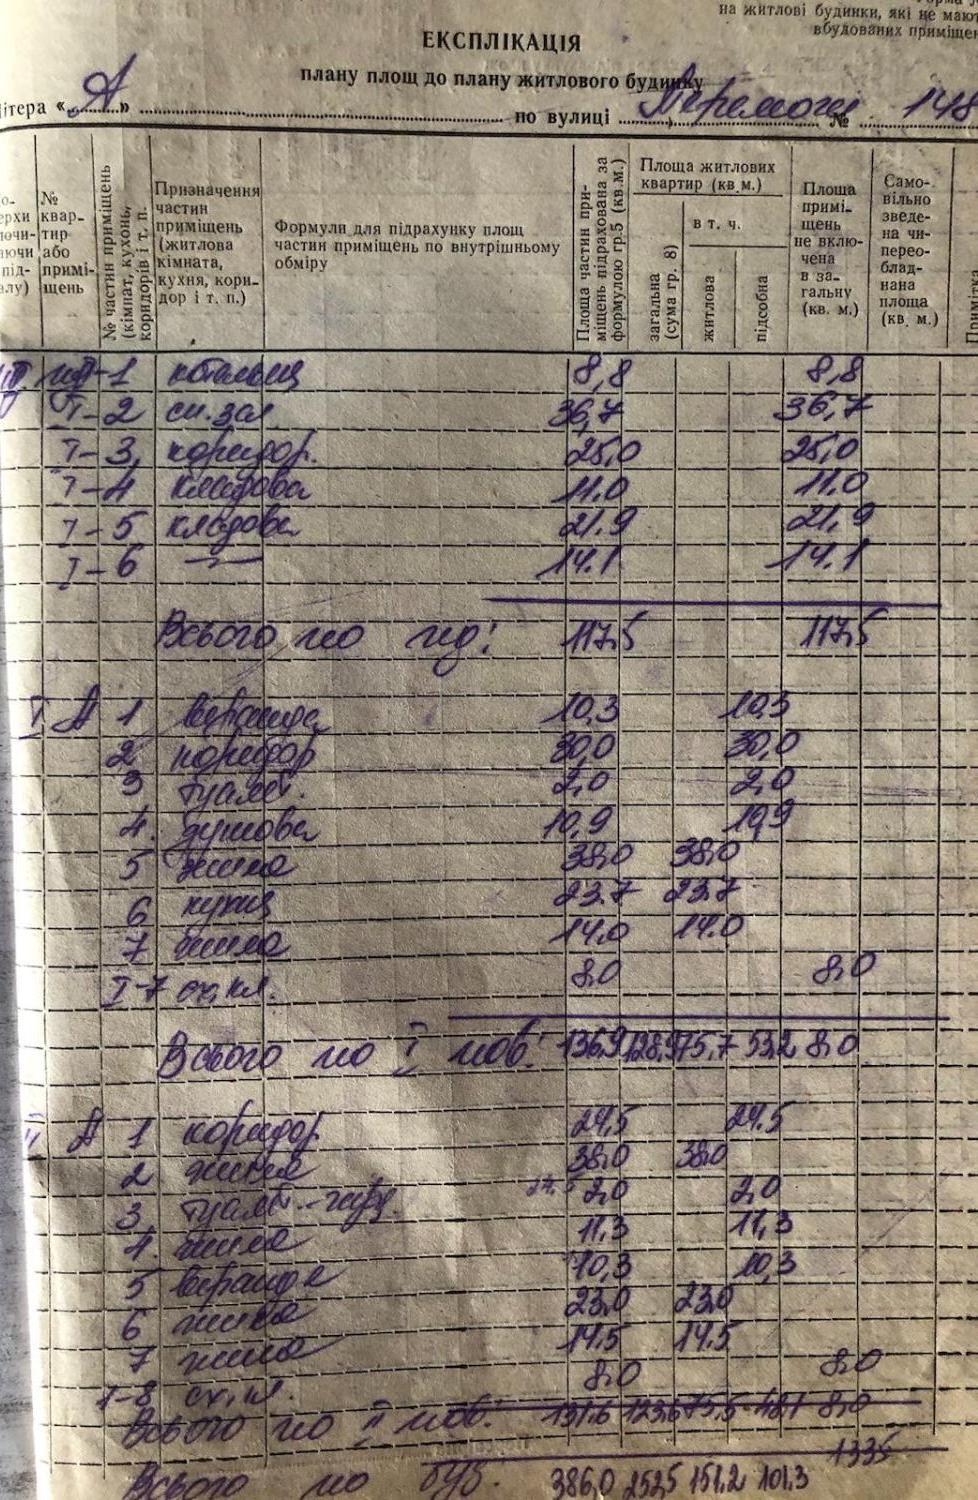 на житлові будинки, які не мают
вбудованих приміщен
ЕКСПЛІКАЦІЯ
плану площ до плану житлового будинку
ітера «А» по вулиці Перемоги № 148
№ квартир або приміщень
№ частин приміщень (кімнат, кухонь, коридорів і т. п.
Призначення частин приміщень (житлова кімната, кухня, коридор і т. п.)
Формули для підрахунку площ частин приміщень по внутрішньому обміру
Площа частин приміщень підрахована за формулою гр.5 (кв.м.)
Площа житлових квартир (кв.м.)
загальна (сума гр. 8)
в т. ч.
житлова
підсобна
Площа приміщень не включена в загальну (кв. м.)
Самовільно зведена чи переобладнана площа (кв. м.)
Примітка
під I-1 котельня 8,8 8,8
I-2 сп.зал 36,7 36,7
I-3 коридор. 25,0 25,0
I-4 кладова 11.0 11.0
I-5 кладова 21,9 21,9
I-6 —"— 14.1 14.1
Всього по під: 117,5 117,5
I А 1 веранда 10,3 10,3
2 коридор 30,0 30,0
3 туалет. 2,0 2,0
4. душова 10,9 10,9
5 жила 38,0 38,0
6 кухня 23.7 23.7
7 жила 14,0 14.0
I-7 сх.кл. 8,0 8,0
Всього по I пов: 136,9 128,9 75,7 53,2 8,0
II А 1 коридор 24,5 24.5
2 жила 38,0 38,0
3 туалет. 2,0 2,0
4. жила 11,3 11,3
5 веранда 10,3 10,3
6 жила 23,0 23,0
7 жила 14,5 14.5
1-8 сх.кл. 8,0 8,0
Всього по II пов: 131,6 123,6 75,5 48,1 8,0
133,5
Всього по буд. 386,0 252,5 151,2 101,3